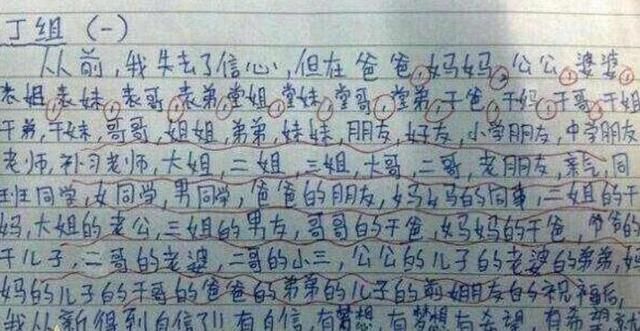 丁组 (一)
从前,我失去了信心,但在爸爸,妈妈,公公,婆婆,
表姐,表妹,表哥,表弟,堂姐,堂妹,堂哥,堂弟,干爸,干妈,干哥,干姐
干弟,干妹,哥哥,姐姐,弟弟,妹妹,朋友,好友,小学朋友,中学朋友
老师,补习老师,大姐,二姐,三姐,大哥,二哥,老朋友,亲戚,同
班同学,女同学,男同学,爸爸的朋友,妈妈的同事,二姐的干
妈,大姐的老公,三姐的男友,哥哥的干爸,妈妈的干爸,爷爷的
干儿子,二哥的老婆,二哥的小三,公公的儿子的老婆的弟弟,妈
妈的儿子的干哥的爸爸的弟弟的儿子的前姐朋友的祝福后,
我从新得到自信了!! 有自信,有梦想,有梦想有希望,有希望